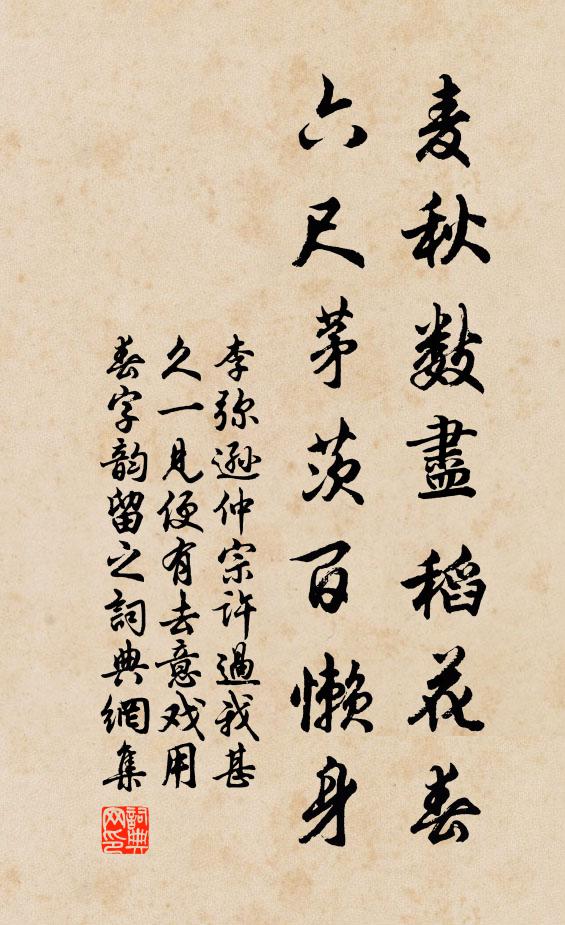 麦秋数盡稻花春
六尺茅茨百懒身
李弥逊仲宗许過我甚
久一見便有去意戏用
春字韵留之詞典網集
詞典网印